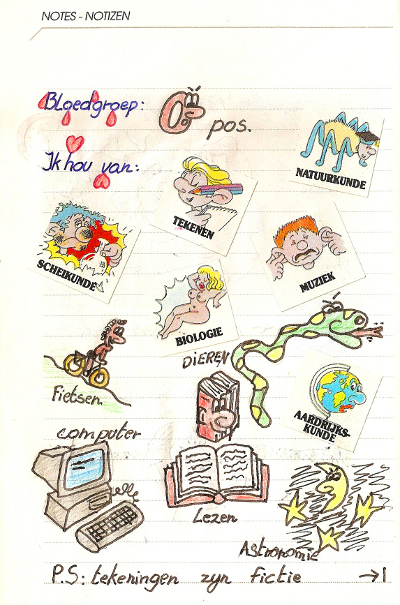 NOTES - NOTIZEN
Bloedgroep: O pos.
Ik hou van:
NATUURKUNDE
TEKENEN
SCHEIKUNDE
MUZIEK
BIOLOGIE
DIEREN
Fietsen
AARDRIJKS-
KUNDE
computer
Lezen
Astronomie
P.S: tekeningen zyn fictie →1